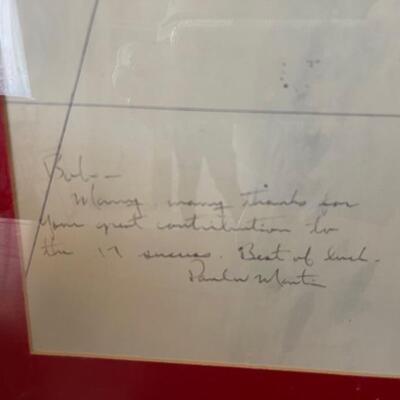 Bob -
Many, many thanks for
your great contribution to
the 17 success. Best of luck.